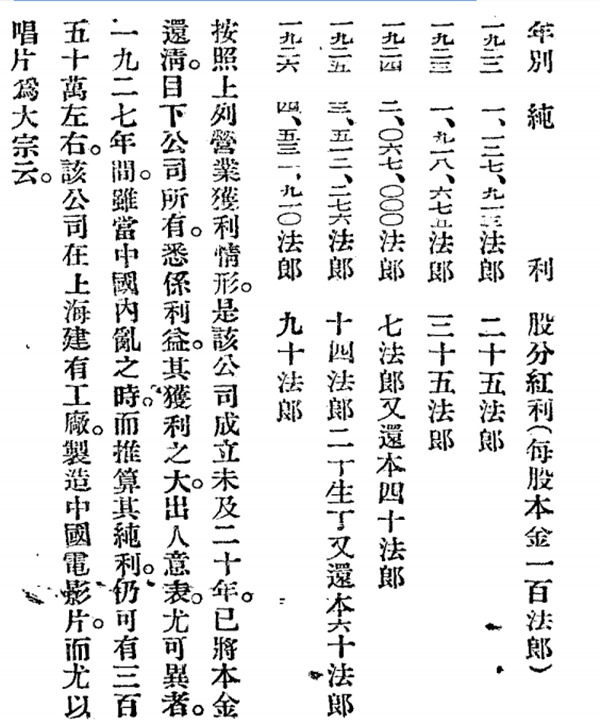 年別 純 利 股分紅利(每股本金一百法郎)
一九二二 一、一二七、九一三法郎 二十五法郎
一九二三 一、九一八、六七五法郎 三十五法郎
一九二四 二、〇六七、〇〇〇法郎 七法郎又還本四十法郎
一九二五 三、五一二、二七六法郎 十四法郎二丁生丁又還本六十法郎
一九二六 四、五三一、九一〇法郎 九十法郎
按照上列營業獲利情形。是該公司成立未及二十年。已將本金
還清。目下公司所有。悉係利益。其獲利之大。出人意表。尤可異者。
一九二七年間。雖當中國內亂之時。而推算其純利。仍可有三百
五十萬左右。該公司在上海建有工廠。製造中國電影片。而尤以
唱片爲大宗云。